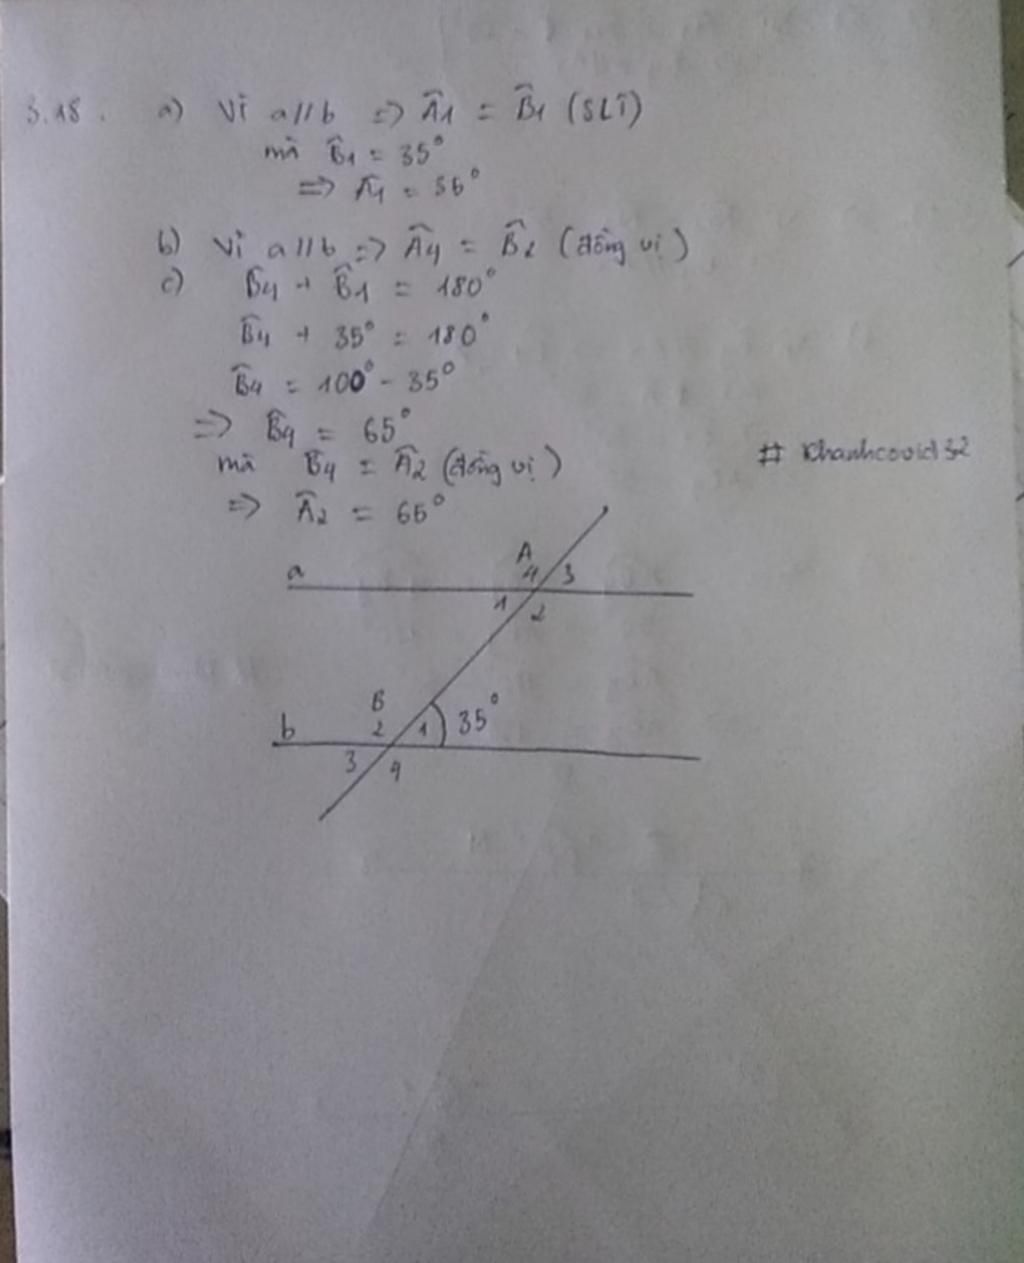 3.18. a) Vì a//b => Â1 = B̂1 (SLT)
mà B̂1 = 35°
=> Â1 = 35°
b) Vì a//b => Â4 = B̂2 (đồng vị)
c) B̂4 + B̂1 = 180°
B̂4 + 35° = 180°
B̂4 = 100° - 35°
=> B̂4 = 65°
mà B̂4 = Â2 (đồng vị)
# Khanhcovid32
=> Â2 = 65°
A
a 4 3
1 2
B
b 2 1 35°
3 4